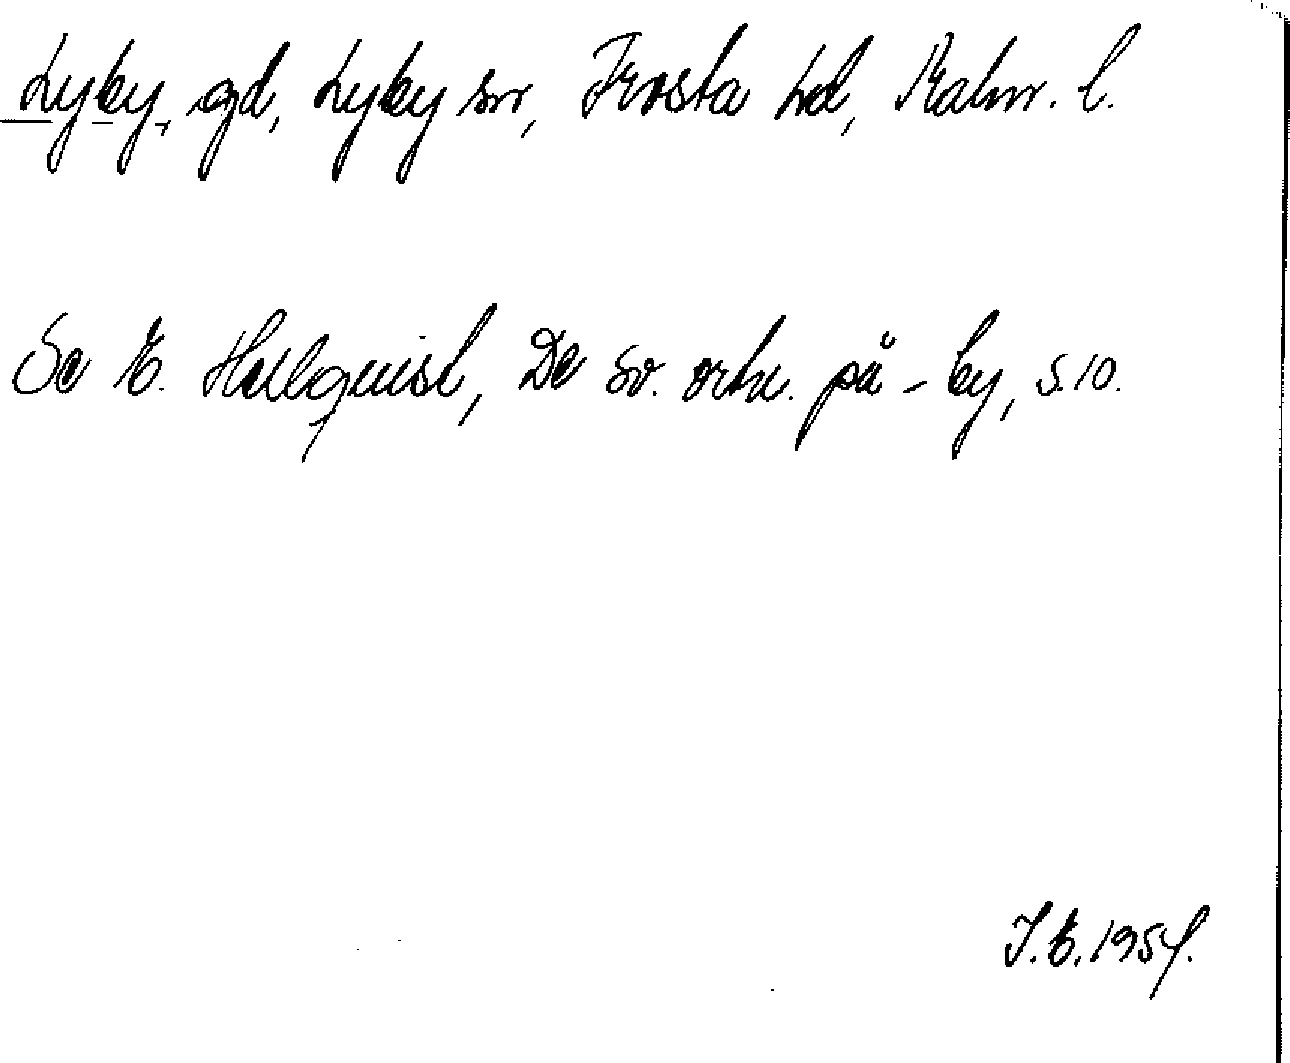 Lyby, gd, Lyby sn, Frosta hd, Malm. l.
Se E. Hellquist, De sv. ortn. på -by, s. 10.
I. E. 1954.